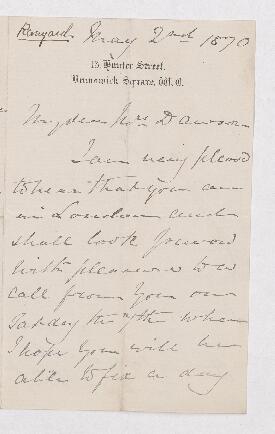 Ranyard
May 2nd 1870
13 Hunter Street.
Brunswick Square, W.C.
My dear Mrs Dawson
I am very pleased
to hear that you are
in London and
shall look forward
with pleasure to a
call from you on
Satday the 7th when
I hope you will be
able to fix a day